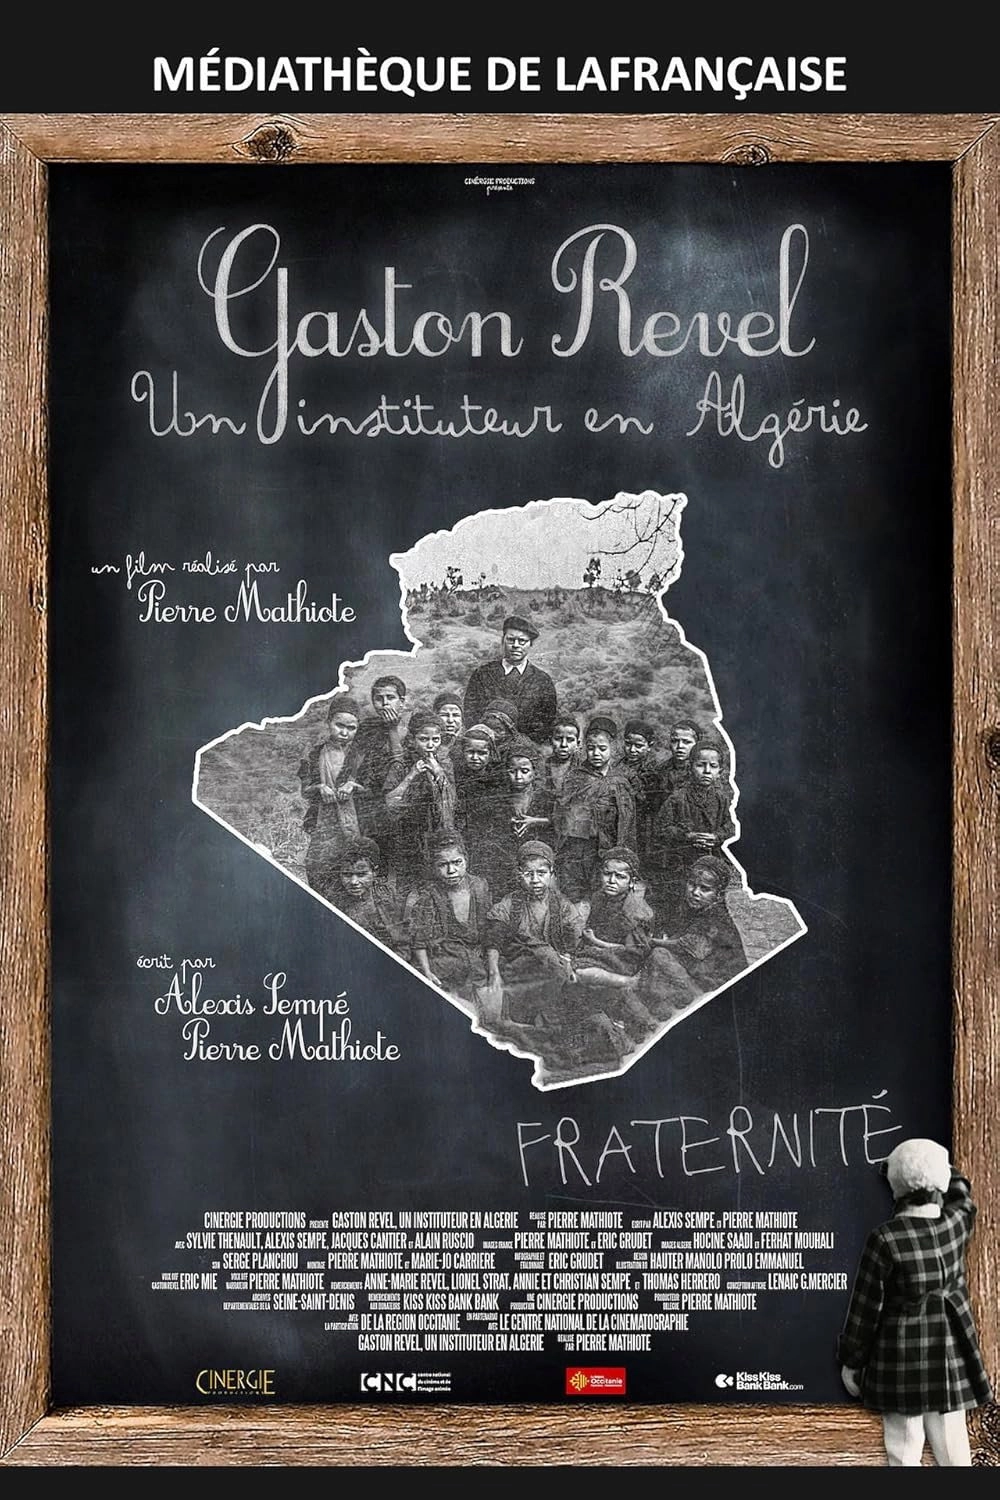 MÉDIATHÈQUE DE LAFRANÇAISE
CINÉRGIE PRODUCTIONS
présente
Gaston Revel
Un instituteur en Algérie
un film réalisé par
Pierre Mathiote
écrit par
Alexis Sempé
Pierre Mathiote
FRATERNITÉ
CINERGIE PRODUCTIONS PRÉSENTE GASTON REVEL, UN INSTITUTEUR EN ALGERIE RÉALISÉ PAR PIERRE MATHIOTE ECRIT PAR ALEXIS SEMPE ET PIERRE MATHIOTE
AVEC SYLVIE THENAULT, ALEXIS SEMPE, JACQUES CANTIER ET ALAIN RUSCIO IMAGES FRANCE PIERRE MATHIOTE ET ERIC GRUDET IMAGES ALGERIE HOCINE SAADI ET FERHAT MOUHALI
SON SERGE PLANCHOU MONTAGE PIERRE MATHIOTE ET MARIE-JO CARRIERE INFOGRAPHIE ET ÉTALONNAGE ERIC GRUDET DESSIN ILLUSTRATION DU HAUTER MANOLO PROLO EMMANUEL
VOIX OFF GASTON REVEL ERIC MIE VOIX OFF NARRATEUR PIERRE MATHIOTE REMERCIEMENTS ANNE-MARIE REVEL, LIONEL STRAT, ANNIE ET CHRISTIAN SEMPE ET THOMAS HERRERO CONCEPTION AFFICHE LENAIC G.MERCIER
ARCHIVES DEPARTEMENTALES DE LA SEINE-SAINT-DENIS REMERCIEMENTS AUX DONATEURS KISS KISS BANK BANK UNE PRODUCTION CINERGIE PRODUCTIONS PRODUCTEUR DELEGUE PIERRE MATHIOTE
AVEC LA PARTICIPATION DE LA REGION OCCITANIE EN PARTENARIAT AVEC LE CENTRE NATIONAL DE LA CINEMATOGRAPHIE
GASTON REVEL, UN INSTITUTEUR EN ALGERIE RÉALISÉ PAR PIERRE MATHIOTE
CINERGIE PRODUCTIONS
CNC centre national du cinéma et de l'image animée
La Région Occitanie
KissKiss BankBank.com